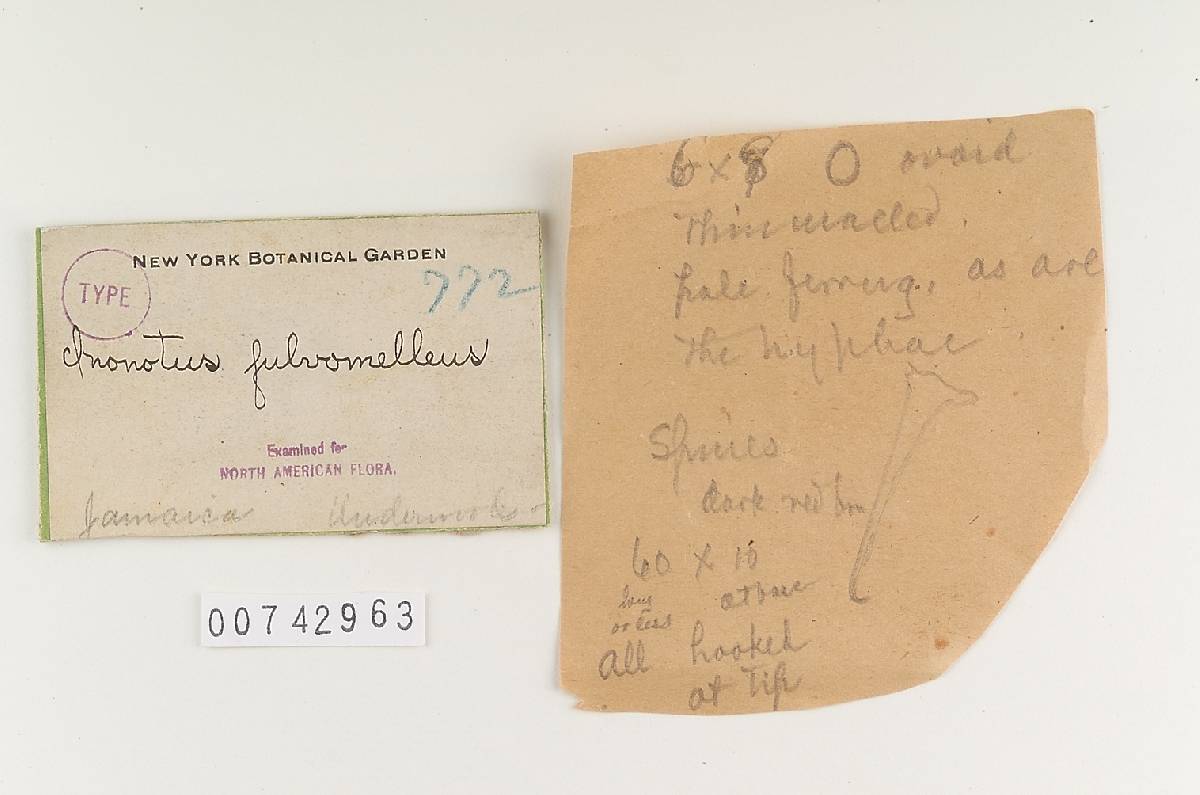 NEW YORK BOTANICAL GARDEN
TYPE
772
Inonotus fulvomelleus
Examined for
NORTH AMERICAN FLORA.
Jamaica
00742963
6 x 8 O ovoid
thin walled.
pale ferrug., as are
the hyphae
Spines
dark red brn
60 x 10
long at base
or less
all hooked
at tip